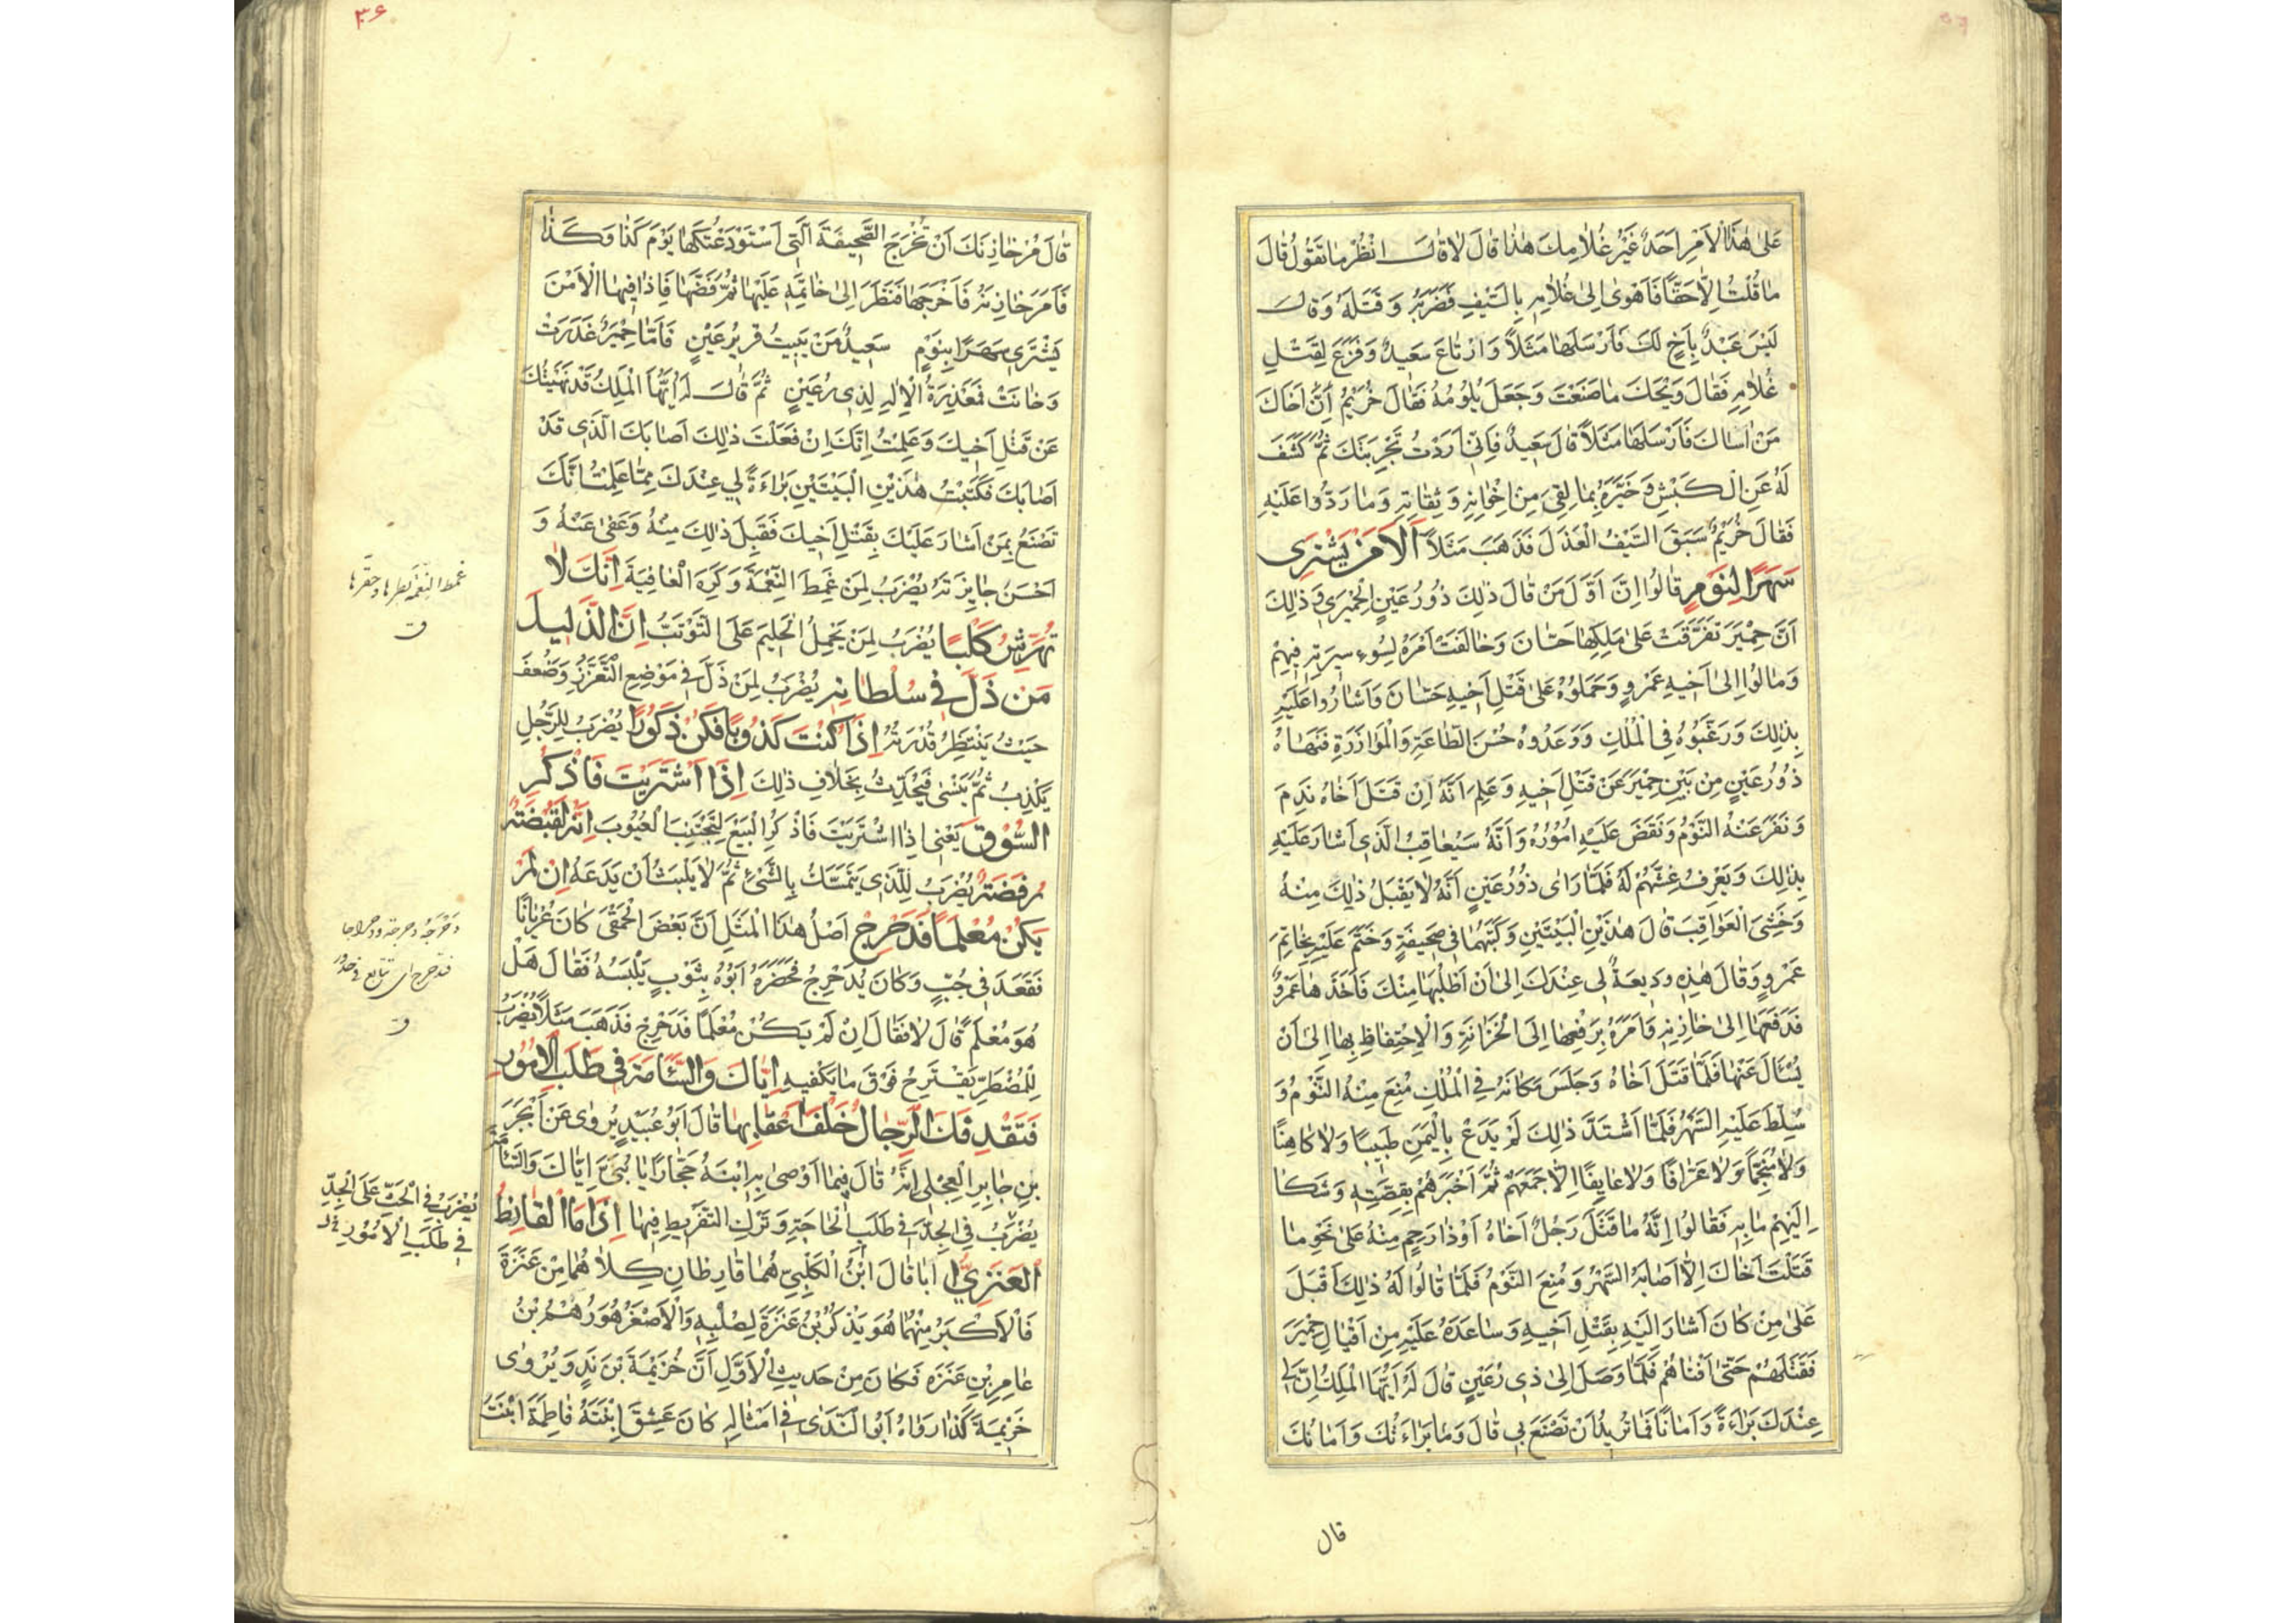 على هذا الامر احد غير غلامك هذا قال لا قال انظر ما تقول قال
ما قلت الا حقا فاهوى الى غلامه بالسيف فضربه وقتله وقال
ليس عبد باخ لك فارسلها مثلا وارتاع سعيد وفزع لقتل
غلامه فقال ويحك ما صنعت وجعل يلومه فقال خريم ان اخاك
من اساك فارسلها مثلا قال سعيد فاني اردت تجربتك ثم كشف
له عن الكبش وخبره بما لقي من اخوانه وثقاته وما ردوا عليه
فقال خريم سبق السيف العذل فذهب مثلا الا من يشترى
سهرا بنوم قالوا ان اول من قال ذلك ذو رعين الحميري وذلك
ان حمير تفرقت على ملكها حسان وخالفت امره لسوء سيرته فيهم
ومالوا الى اخيه عمرو وحملوه على قتل اخيه حسان واشاروا عليه
بذلك ورغبوه في الملك ووعدوه حسن الطاعة والموازرة فنهاه
ذو رعين من بين حمير عن قتل اخيه وعلم انه ان قتل اخاه ندم
ونفر عنه النوم ونقض عليه اموره وانه سيعاقب الذي اشار عليه
بذلك ويعرف غشهم له فلما راى ذو رعين انه لا يقبل ذلك منه
وخشى العواقب قال هذين البيتين وكتبهما في صحيفة وختم عليه بخاتم
عمرو وقال هذه وديعة لي عندك الى ان اطلبها منك فاخذها عمرو
فدفعها الى خازنه وامره برفعها الى الخزانة والاحتفاظ بها الى ان
يسئال عنها فلما قتل اخاه وجلس مكانه في الملك منع منه النوم و
سلط عليه السهر فلما اشتد ذلك لم يدع باليمن طبيبا ولا كاهنا
ولا منجما ولا عرافا ولا عايفا الا جمعهم ثم اخبرهم بقصته وشكا
اليهم ما به فقالوا انه ما قتل رجل اخاه او ذا رحم منه على نحو ما
قتلت اخاك الا اصابه السهر ومنع النوم فلما قالوا له ذلك اقبل
على من كان اشار اليه بقتل اخيه وساعده عليه من اقيال حمير
فقتلهم حتى افناهم فلما وصل الى ذي رعين قال له ايها الملك ان لي
عندك براءة وامانا فما تريد ان تصنع بي قال وما براءتك وامانك
قال
٣٦
قال مر خازنك ان تخرج الصحيفة التي استودعتكها يوم كذا وكذا
فامر خازنه فاخرجها فنظر الى خاتمه عليها ثم فضها فاذا فيها الا من
يشترى سهرا بنوم سعيد من يبيت قرير عين فاما حمير غدرت
وخانت فمعذرة الاله لذي رعين ثم قال له ايها الملك قد نهيتك
عن قتل اخيك وعلمت انك ان فعلت ذلك اصابك الذي قد
اصابك فكتبت هذين البيتين براءة لي عندك مما علمت انك
تصنع بمن اشار عليك بقتل اخيك فقبل ذلك منه وعفى عنه و
احسن جايزته يضرب لمن غمط النعمة وكره العافية انك لا
تهرش كلبا يضرب لمن يحمل الحليم على التوثب ان الذليل
من ذل في سلطانه يضرب لمن ذل في موضع التعزز وضعف
حيث ينتظر قدرته اذا كنت كذوبا فكن ذكورا يضرب للرجل
يكذب ثم ينسى فيحدث بخلاف ذلك اذا اشتريت فاذكر
السوق يعني اذا اشتريت فاذكر البيع لتجتنب العيوب انه لقبضة
رفضة يضرب للذي يتمسك بالشيئ ثم لا يلبث ان يدعه ان لم
يكن معلما فدحرج اصل هذا المثل ان بعض الحمقى كان عريانا
فقعد في جب وكان يدحرج فحضره ابوه بثوب يلبسه فقال هل
هو معلم قال لا فقال ان لم يكن معلما فدحرج فذهب مثلا يضرب
للمضطر يقترح فوق ما يكفيه اياك والسئامة في طلب الامور
فتقذفك الرجال خلف اعقابها قال ابو عبيد يروى عن ابجر
بن جابر العجلي انه قال فيما اوصى به ابنه حجارا يا بني اياك والسئامة
يضرب في الجد في طلب الحاجة وترك التفريط فيها اذا ما القارظ
العنزي ابا قال ابن الكلبي هما قارظان كلاهما من عنزة
فالاكبر منهما هو يذكر بن عنزة لصلبه والاصغر هو رهم بن
عامر بن عنزة فكان من حديث الاول ان خزيمة بن نهد ويروى
خزيمة كذا رواه ابو الندى في امثاله كان عشق ابنته فاطمة ابنت
غمط النعمة بطرها وحقرها
ق
دحرجه دحرجة ودحراجا
فتدحرج اي تتابع في حدور
ق
يضرب في الحث على الجد
في طلب الامور